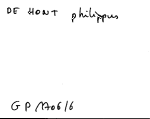 DE HONT philippus
G P 1706/6